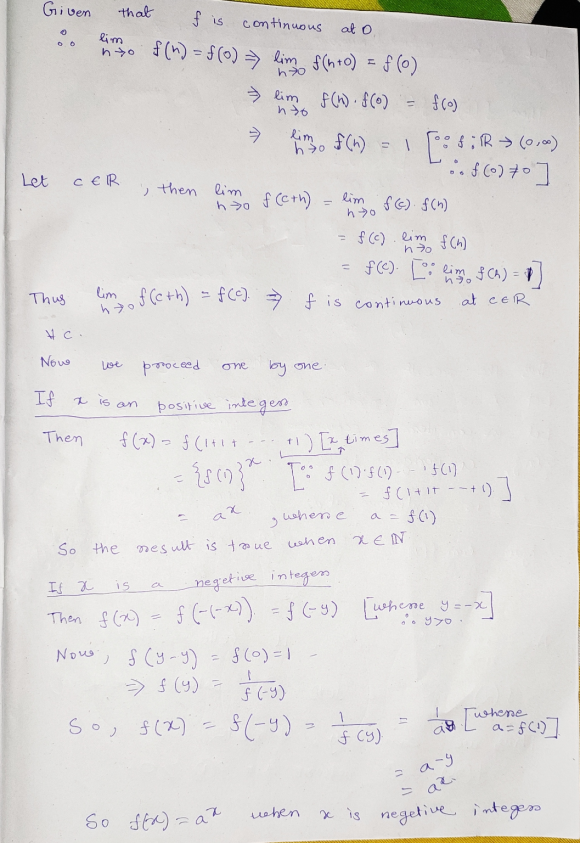 Given that f is continuous at 0.
∴ lim h→0 f(h) = f(0) ⇒ lim h→0 f(h+0) = f(0)
⇒ lim h→0 f(h)·f(0) = f(0)
⇒ lim h→0 f(h) = 1 [∵ f: ℝ → (0,∞)
∴ f(0) ≠ 0]
Let c ∈ ℝ, then lim h→0 f(c+h) = lim h→0 f(c)·f(h)
= f(c) lim h→0 f(h)
= f(c). [∵ lim h→0 f(h) = 1]
Thus lim h→0 f(c+h) = f(c). ⇒ f is continuous at c ∈ ℝ
∀ c.
Now we proceed one by one
If x is an positive integers
Then f(x) = f(1+1+ --- +1) [x times]
= {f(1)}^x. [∵ f(1)·f(1)---·f(1)
= f(1+1+--+1)]
= a^x, where a = f(1)
So the result is true when x ∈ ℕ
If x is a negetive integers
Then f(x) = f(-(-x)) = f(-y) [where y = -x
∴ y>0.]
Now, f(y-y) = f(0) = 1
⇒ f(y) = 1/f(-y)
So, f(x) = f(-y) = 1/f(y) = 1/a^y [where a = f(1)]
= a^-y
= a^x.
So f(x) = a^x when x is negetive integers